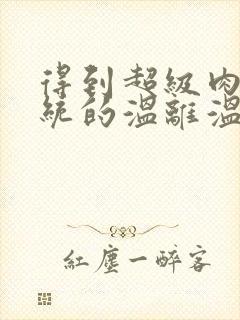 得到超級肉
統的溫離溫
紅塵一醉客